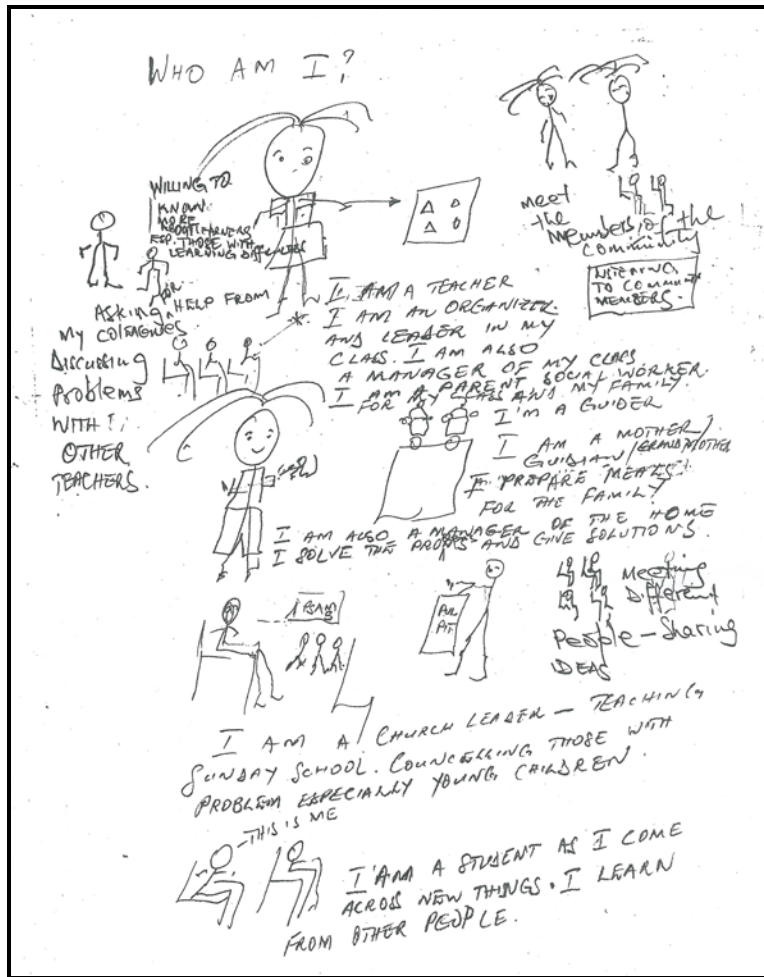 WHO AM I?
WILLING TO
KNOW
MORE
ABOUT LEARNERS
ESP. THOSE WITH
LEARNING DIFFICULTIES
ASKING FOR HELP FROM
MY COLEAGUES
DISCUSSING
Problems
WITH
OTHER
TEACHERS.
meet
the
Members of the
community
LISTENING
TO COMMUNITY
MEMBERS.
I AM A TEACHER
I AM AN ORGANIZER
AND LEADER IN MY
CLASS. I AM ALSO
A MANAGER OF MY CLASS
I AM A PARENT SOCIAL WORKER
FOR MY CLASS AND MY FAMILY.
I'M A GUIDER
I AM A MOTHER/
GUIDIAN/GRANDMOTHER
I PREPARE MEALS
FOR THE FAMILY
I AM ALSO A MANAGER OF THE HOME
I SOLVE THE AND GIVE SOLUTIONS.
PUL
PIT
Meeting
Different
People - Sharing
IDEAS
I AM A CHURCH LEADER - TEACHING
SUNDAY SCHOOL. COUNCELLING THOSE WITH
PROBLEM ESPECIALLY YOUNG CHILDREN.
THIS IS ME
I AM A STUDENT AS I COME
ACROSS NEW THINGS. I LEARN
FROM OTHER PEOPLE.